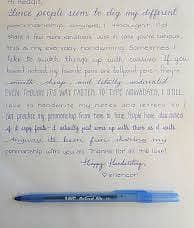 Hi Reddit,
Since people seem to dig my different
penmanship analysis, I thought I'd
share a few more analysis. Just in case you're curious,
this is my everyday handwriting. Sometimes I
like to switch things up with cursive. If you
haven't noticed my favorite pens are ballpoint pens. They're
smooth, cheap, and totally underrated
EVEN THOUGH IT'S WAY FASTER TO TYPE NOWADAYS, I STILL
love to handwrite my notes and letters so I
can practice my penmanship from time to time. People have
if I copy fonts - I actually just come up with them as I write.
Anyway, it's been fun sharing my
penmanship with you all. Thanks for all the love!
Happy Handwriting,
BIC